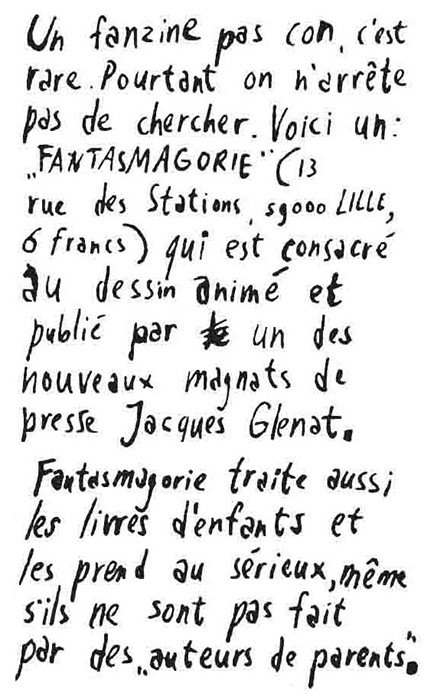 Un fanzine pas con, c'est
rare. Pourtant on n'arrête
pas de chercher. Voici un:
„FANTASMAGORIE" (13
rue des Stations, 59000 LILLE,
6 francs) qui est consacré
au dessin animé et
publié par un des
nouveaux magnats de
presse Jacques Glenat.
Fantasmagorie traite aussi
les livres d'enfants et
les prend au sérieux, même
s'ils ne sont pas fait
par des „auteurs de parents".